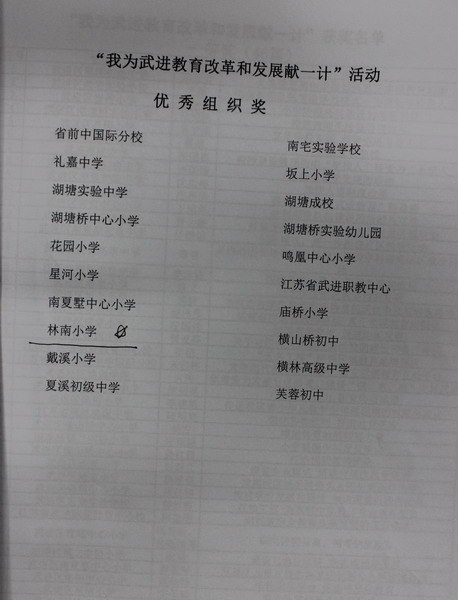 “我为武进教育改革和发展献一计”活动
优秀组织奖
省前中国际分校
礼嘉中学
湖塘实验中学
湖塘桥中心小学
花园小学
星河小学
南夏墅中心小学
林南小学
戴溪小学
夏溪初级中学
南宅实验学校
坂上小学
湖塘成校
湖塘桥实验幼儿园
鸣凰中心小学
江苏省武进职教中心
庙桥小学
横山桥初中
横林高级中学
芙蓉初中